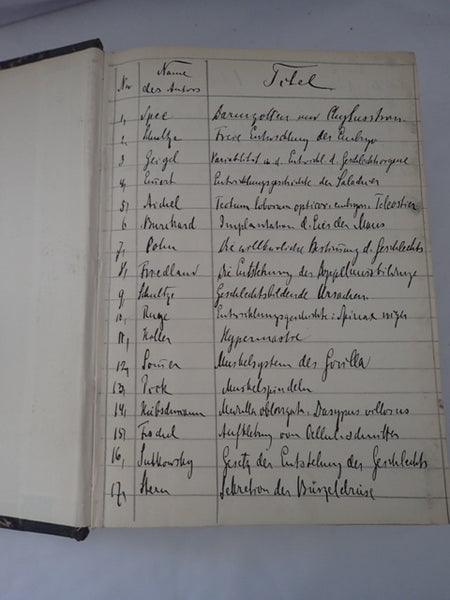 No Name des Autors Titel
1, Spee Darmzotten und Chylusstrom
2, Schultze Freie Entwicklung des Embryo
3 Geigel Variabilität u. d. Entwickl d. Geschlechtsorgane
4, Entwicklungsgeschichte der
5, Aichel Tectum loborum opticor. embryon. Teleostier
6 Burckhard Implantation d. Eies der Maus
7, Cohn Die willkürliche Bestimmung d. Geschlechts
8, Friedland Die Entstehung der
9, Schultze Geschlechtsbildende Ursachen
10, Ruge Entwicklungsgeschichte: Spinax niger
11, Koller Hypermastie
12, Sommer Muskelsystem des Gorilla
13, Muskelspindeln
14, Medulla oblongata: Dasypus villosus
15, Aufklebung von Celluloidschnitten
16, Sutkowsky Gesetz der Entstehung des Geschlechts
17, Stern Sekretion der Bürzeldrüse